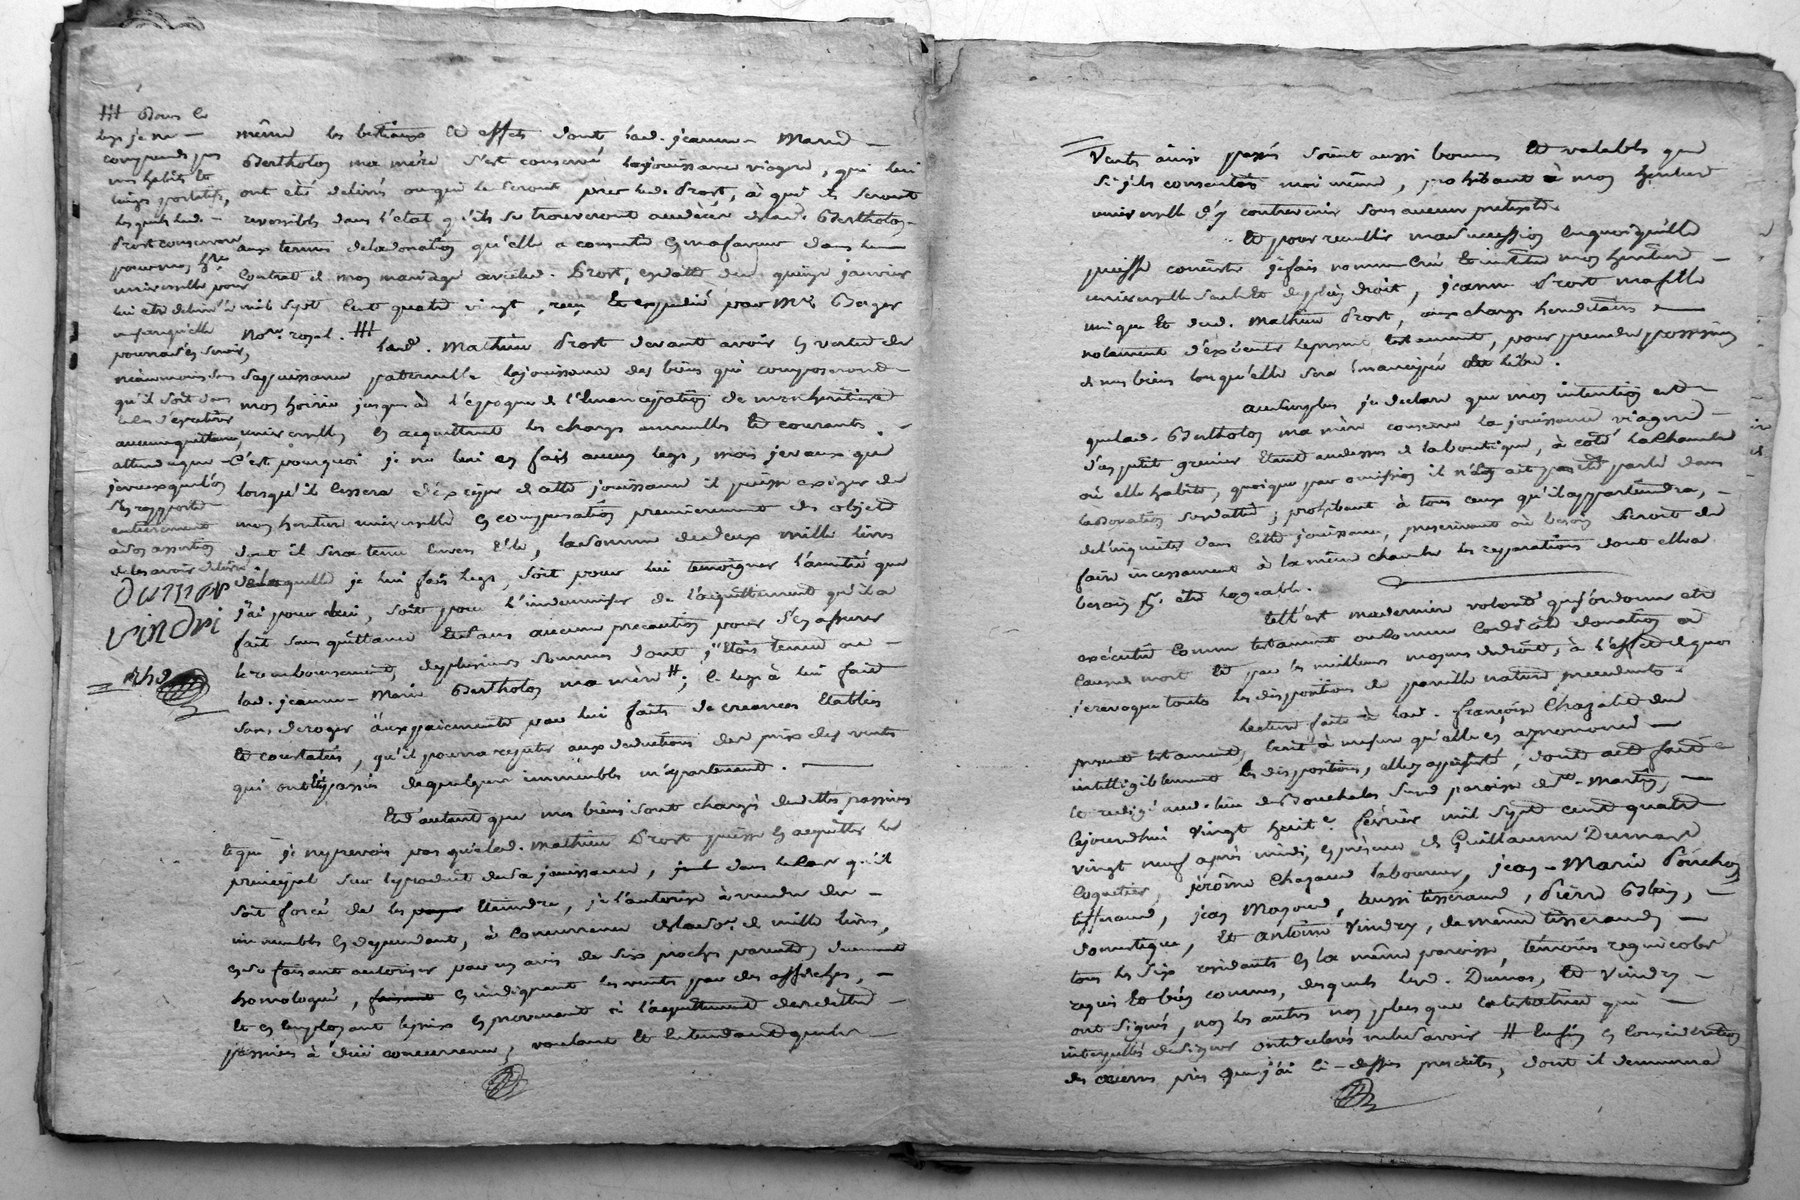 ### Dans le
legs je ne
comprends pas
mes habits et
linges portatifs,
lesquels lad.
Prost conservera
pour mon hre
universelle pour
lui etre delivré à
mesure qu'elle
pourra s'en servir,
neanmoins sans
qu'il soit dans
le cas d'en retirer
aucune quittance,
attendu que
je veux que l'on
s'en rapporte
entierement
à son assertion
de les avoir delivré
dumas
vindri
même les bestiaux et effets dont lad. jeanne Marie
Bertholon ma mère s'est conservé la jouissance viagere, qui lui
ont été delivrés ou qui le seront par led. Prost, à qui ils seront
reversibles dans l'état qu'ils se trouveront au décès de lad. Bertholon
aux termes de la donation qu'elle a consentie en ma faveur dans
contrat de mon mariage avec led. Prost, en datte du quinze janvier
mil sept cent quatre vingt, reçu et expedié par Me Berger
Nore royal. ###
Led. Mathieu Prost devant avoir en vertu de
sa puissance paternelle la jouissance des biens qui composeront
mon hoirie jusques à l'epoque de l'emancipation de mon heritiere
universelle, en acquittant les charges annuelles et courantes.
C'est pourquoi je ne lui en fais aucun legs, mais je veux que
lorsqu'il cessera d'exiger de cette jouissance il puisse exiger de
mon heritiere universelle en compensation premierement des objets
dont il sera tenu envers elle, la somme de deux mille livres
de laquelle je lui fais legs, soit pour lui temoigner l'amitié que
j'ai pour lui, soit pour l'indemniser de l'acquittement qu'il a
fait sans quittance et sans aucune precaution pour s'en assurer
le remboursement, de plusieurs sommes dont j'etois tenue ou
lad. jeanne Marie Bertholon ma mère #; ce legs à lui fait
sans deroger aux paiements par lui faits de creances etablies
et constatées, qu'il pourra repeter aux deductions des prix des ventes
qui ont été passés de quelques immeubles m'appartenant.
Et d'autant que mes biens sont chargés de dettes passives
et que je ne prevois pas que led. Mathieu Prost puisse en acquitter le
principal sur le produit de sa jouissance, dans le cas qu'il
soit forcé de les eteindre, je l'autorise à vendre des
immeubles en dependant, à concurrence de la some de mille livres,
en se faisant autoriser par un avis de six proches parents, duement
homologué, en indiquant les ventes par des affiches,
et en employant le prix en provenant à l'acquittement des dettes
passives à due concurrence; voulant et entendant que les
Ventes ainsi passées soient aussi bonnes et valables que
si j'y consentois moi même, prohibant à mon heritiere
universelle d'y contrevenir sous aucun pretexte.
Et pour recueillir ma succession en quoi qu'elle
puisse consister je fais nomme crée et institue mon heritiere
universelle seule et de plein droit, jeanne Prost ma fille
unique et dud. Mathieu Prost, aux charges hereditaires
notament d'executer le present testament, pour prendre possession
de mes biens lorsqu'elle sera emancipée libre.
Au surplus je declare que mon intention est
que lad. Bertholon ma mère conserve la jouissance viagere
d'un petit grenier etant au dessus de la boutique, à coté la Chambre
où elle habite, quoique par omission il n'en ait pas été parlé dans
la donation susdatte; prohibant à tous ceux qu'il appartiendra,
de l'inquieter dans cette jouissance, prescrivant au besoin de
faire incessament à la même chambre les reparations dont elle a
besoin pr etre logeable.
telle est ma derniere volonté que j'ordonne etre
executée comme testament ou comme codicile donation à
cause de mort et par les meilleurs moyens de droit, à l'effet de quoi
je revoque toutes les dispositions de pareille nature precedentes.
Lecture faite à lad. françoise Chazalet du
present testament, ecrit à mesure qu'elle en a prononcé
intelligiblement les dispositions, elle y a persisté, dont acte fait
et redigé aud. lieu des Bouchales sur paroisse de St. Martin,
Cejourdhui vingt huit fevrier mil sept cent quatre
vingt neuf après midi, en présence de Guillaume Dumas
Coquetier, jérôme Chazaud laboureur, jean-Marie Ponchon
tisserand, jean Mazond, aussi tisserand, Pierre Oblin,
domestique, et antoine Vindry, de même tisserand,
tous les six residants en la même paroisse, temoins regnicoles
requis et bien connus, desquels lesd. Dumas, et Vindry
ont signés, non les autres non plus que la testatrice qui
interpellés de signer ont declarés ne le savoir # enfin en consideration
des prix que j'ai ci-dessus prescrites, dont il demeurera